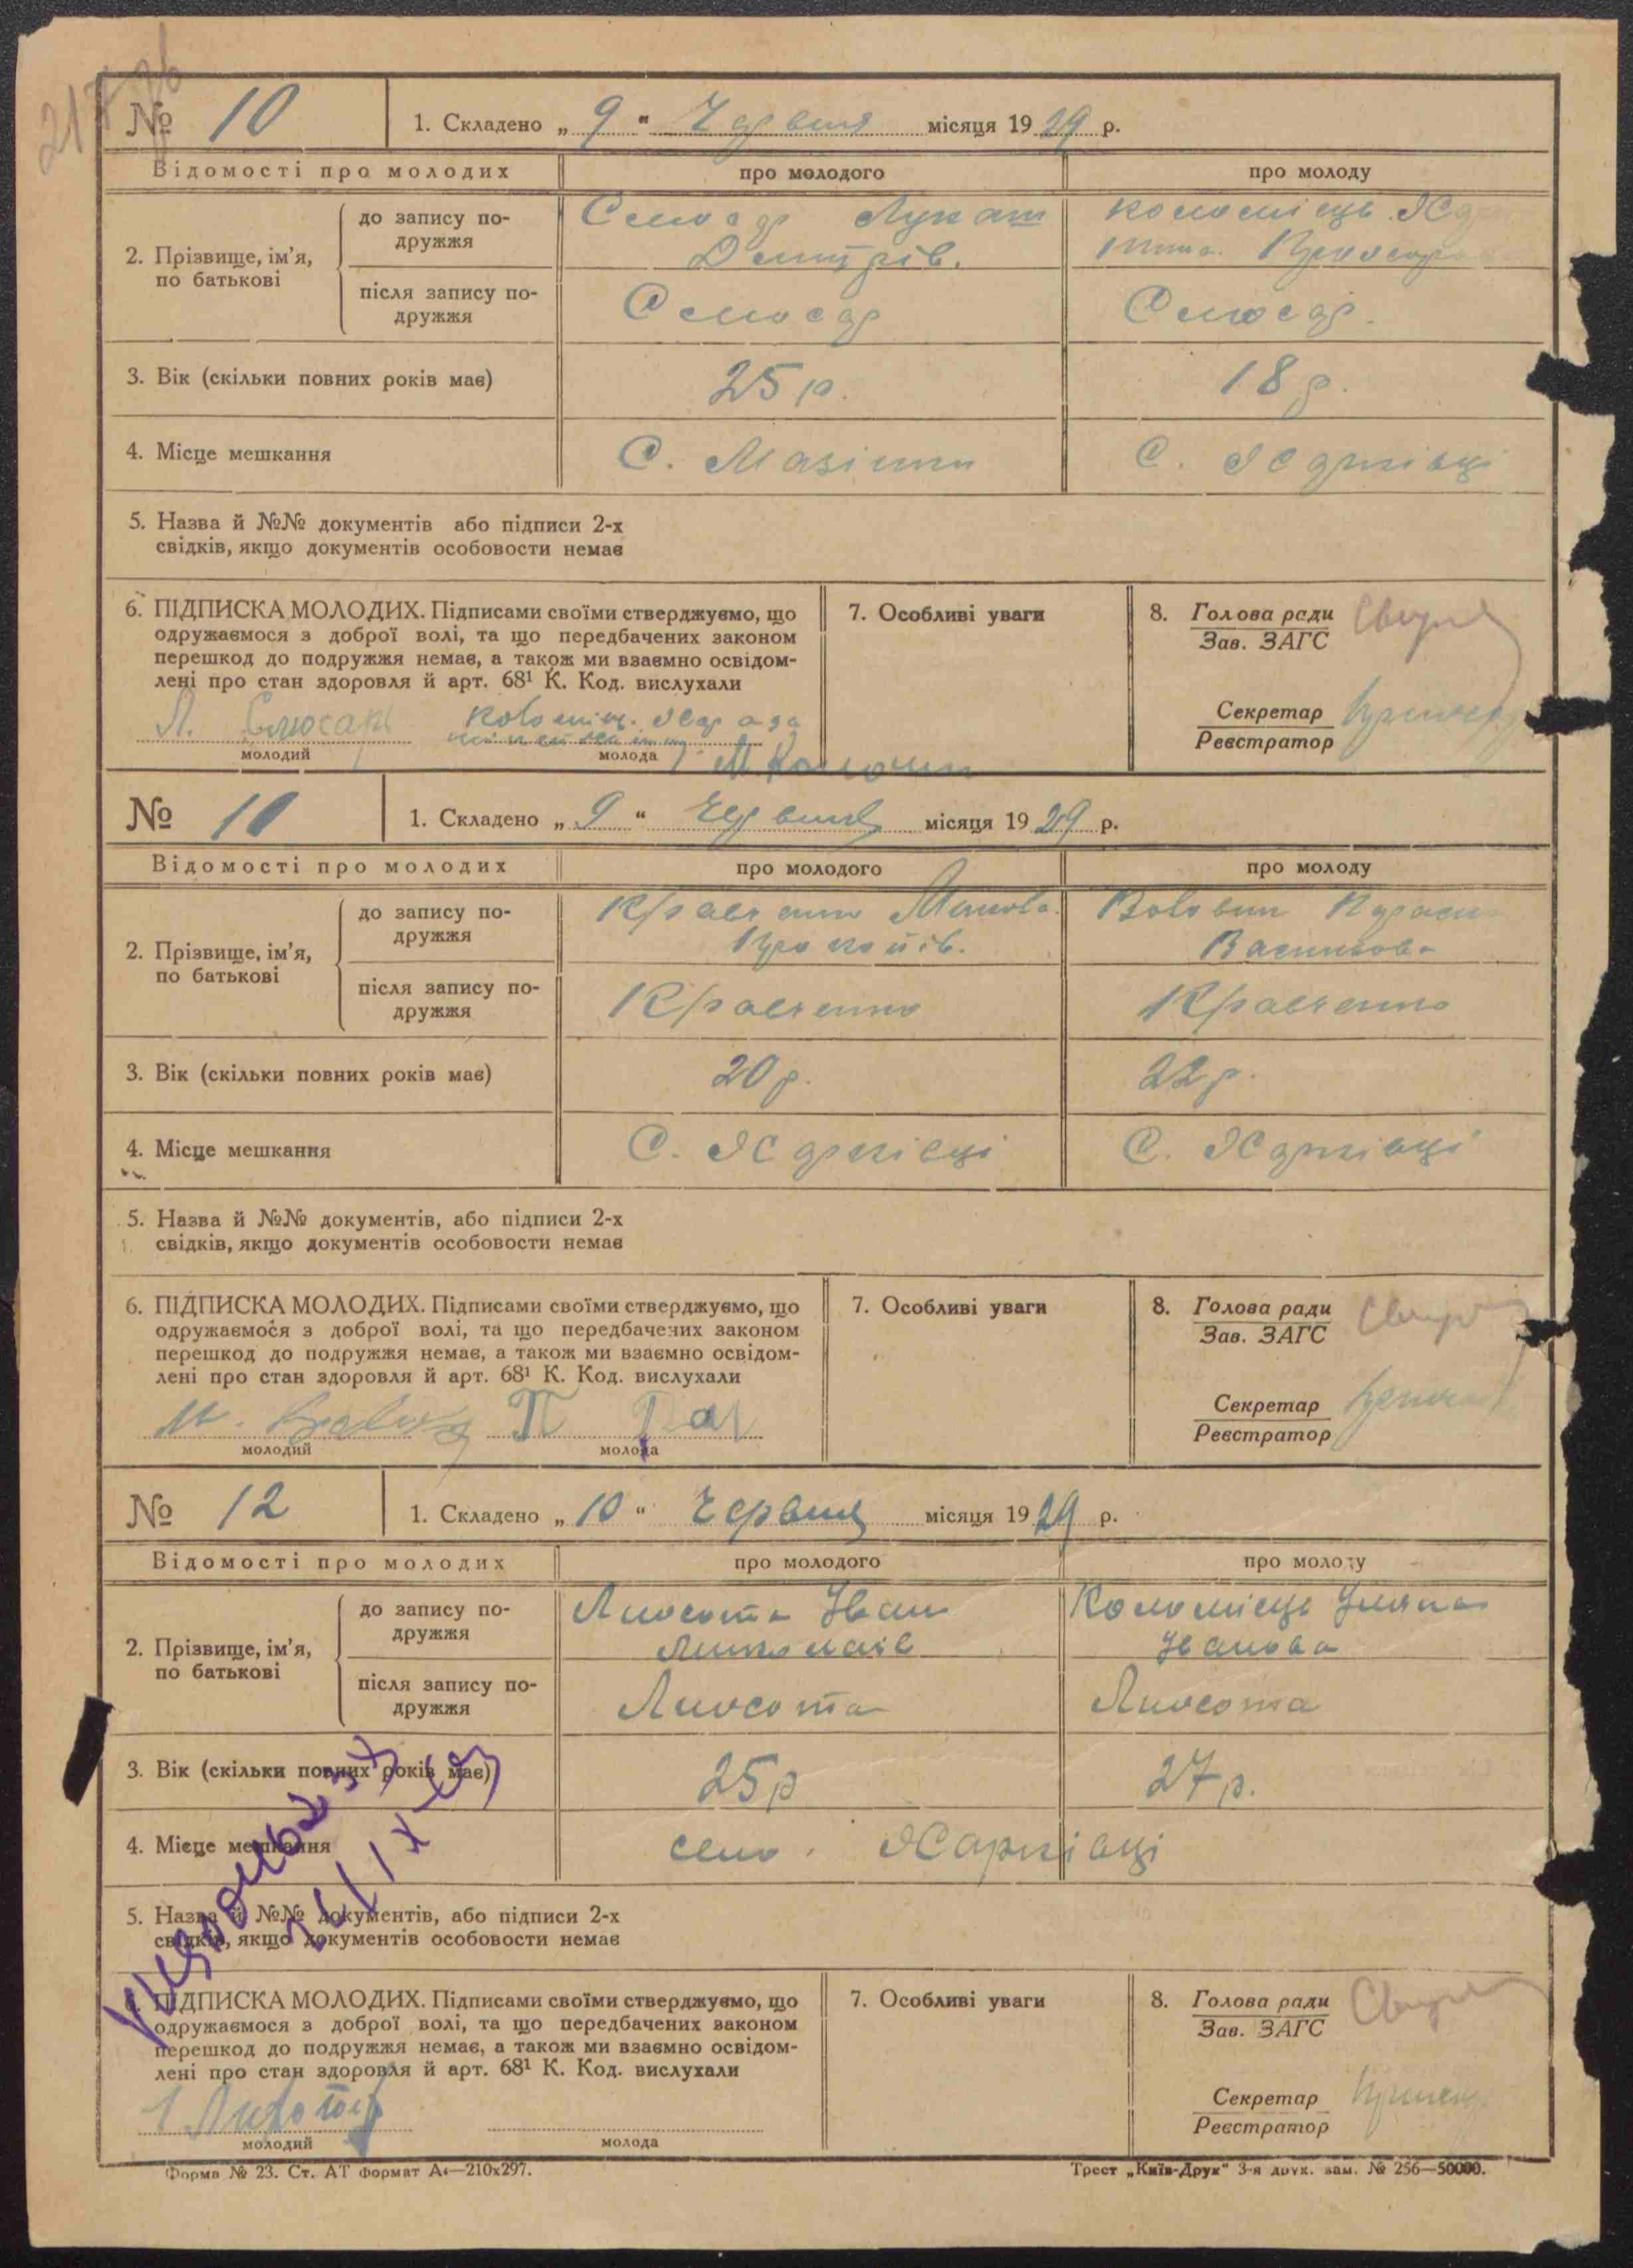 № 10
1. Складено „ 9 “ Червня місяця 19 29 р.
Відомості про молодих
про молодого
про молоду
2. Прізвище, ім’я, по батькові
до запису по-
дружжя
Слюсар Лукаш
Дмитрів.
Коломієць
після запису по-
дружжя
Слюсар
Слюсар.
3. Вік (скільки повних років має)
25 р.
18 р.
4. Місце мешкання
С. Мазінки
С. Харківці
5. Назва й №№ документів або підписи 2-х
свідків, якщо документів особовости немає
6. ПІДПИСКА МОЛОДИХ. Підписами своїми стверджуємо, що
одружаємося з доброї волі, та що передбачених законом
перешкод до подружжя немає, а також ми взаємно освідом-
лені про стан здоровля й арт. 68¹ К. Код. вислухали
Л. Слюсар
молодий
молода
7. Особливі уваги
8. Голова ради
Зав. ЗАГС
Секретар
Реєстратор
№ 10
1. Складено „ 9 “ Червня місяця 19 29 р.
Відомості про молодих
про молодого
про молоду
2. Прізвище, ім’я,
по батькові
до запису по-
дружжя
Кравченко Микола
Прокопів.
Вововик Параска
Васильова
після запису по-
дружжя
Кравченко
Кравченко
3. Вік (скільки повних років має)
20 р.
22 р.
4. Місце мешкання
С. Харківці
С. Харківці
5. Назва й №№ документів, або підписи 2-х
свідків, якщо документів особовости немає
6. ПІДПИСКА МОЛОДИХ. Підписами своїми стверджуємо, що
одружаємося з доброї волі, та що передбачених законом
перешкод до подружжя немає, а також ми взаємно освідом-
лені про стан здоровля й арт. 68¹ К. Код. вислухали
молодий
молода
7. Особливі уваги
8. Голова ради
Зав. ЗАГС
Секретар
Реєстратор
№ 12
1. Складено „ 10 “ Червня місяця 19 29 р.
Відомості про молодих
про молодого
про молоду
2. Прізвище, ім’я,
по батькові
до запису по-
дружжя
Лисота Іван
Миколаїв
Коломієць Уляна
Іванова
після запису по-
дружжя
Лисота
Лисота
3. Вік (скільки повних років має)
25 р
27 р.
4. Місце мешкання
село. Харківці
5. Назва й №№ документів, або підписи 2-х
свідків, якщо документів особовости немає
6. ПІДПИСКА МОЛОДИХ. Підписами своїми стверджуємо, що
одружаємося з доброї волі, та що передбачених законом
перешкод до подружжя немає, а також ми взаємно освідом-
лені про стан здоровля й арт. 68¹ К. Код. вислухали
молодий
молода
7. Особливі уваги
8. Голова ради
Зав. ЗАГС
Секретар
Реєстратор
Форма № 23. Ст. АТ формат А₄—210x297.
Трест „Київ-Друк“ 3-я друк. зам. № 256—50000.